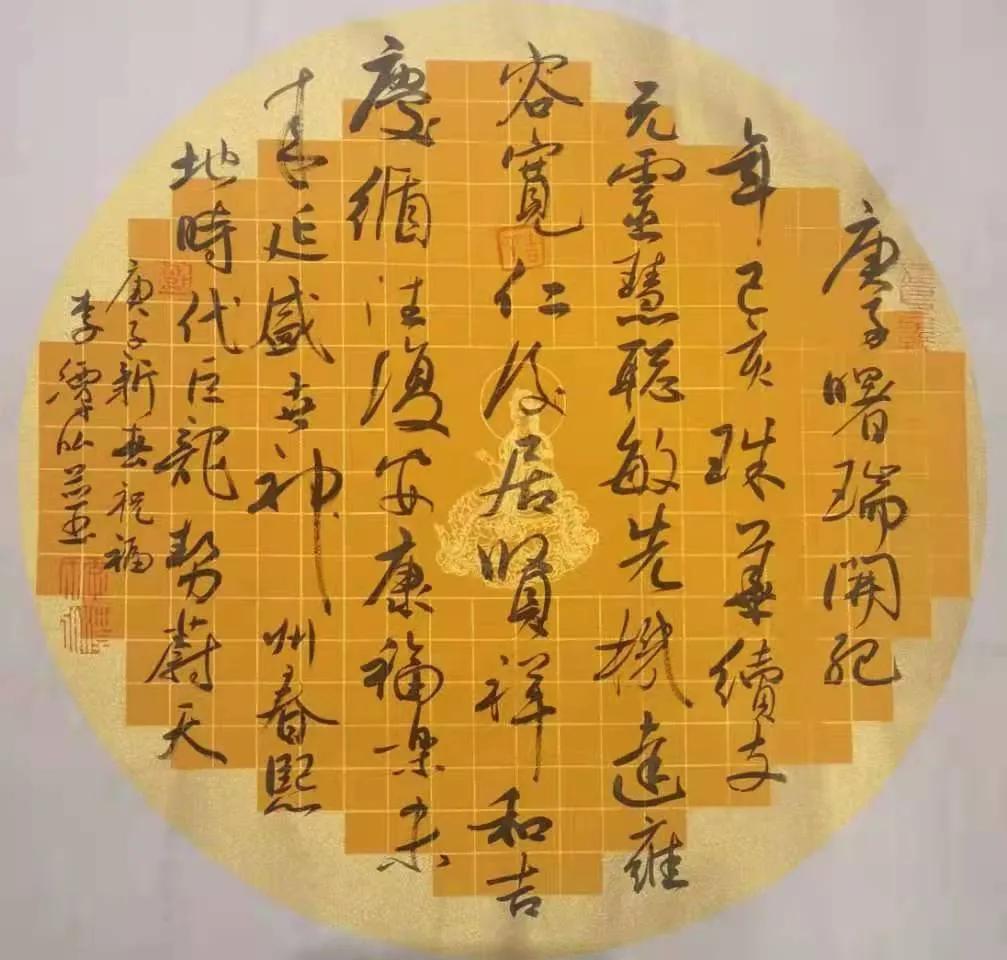 庚子曙瑞開紀
年己亥珠華續支
元靈慧聰敏先機達雍
容寬仁後居賢祥和吉
慶循往復安康福樂未
來延盛世神州春熙
地時代巨龍勢蔚天
庚子新春祝福
李